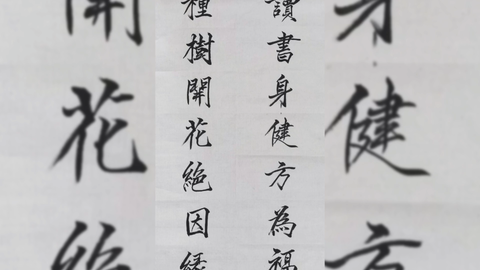 身健方
讀書身健方為福
種樹開花絕因緣
開花絕